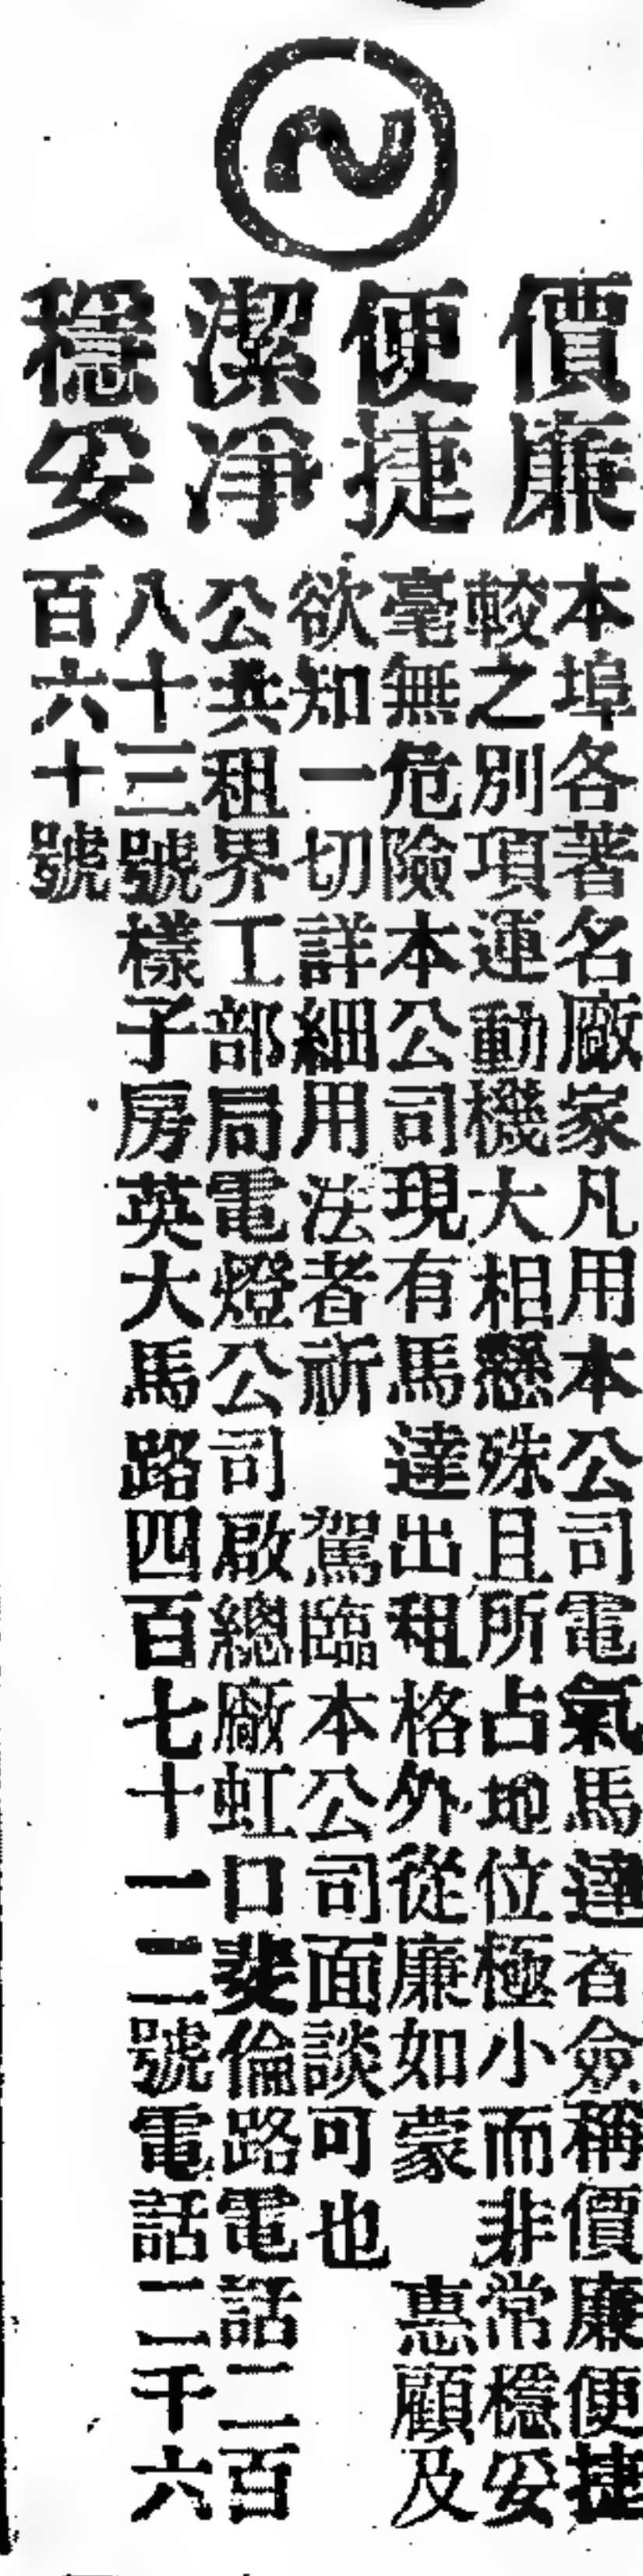 價廉
便捷
潔凈
穩妥
本埠各著名廠家凡用本公司電氣馬達者僉稱價廉便捷
較之別項運動機大相懸殊且所占地位極小而非常穩妥
毫無危險本公司現有馬達出租格外從廉如蒙 惠顧及
欲知一切詳細用法者祈 駕臨本公司面談可也
公共租界工部局電燈公司啟總廠虹口斐倫路電話二百
八十三號樣子房英大馬路四百七十一二號電話二千六
百六十號